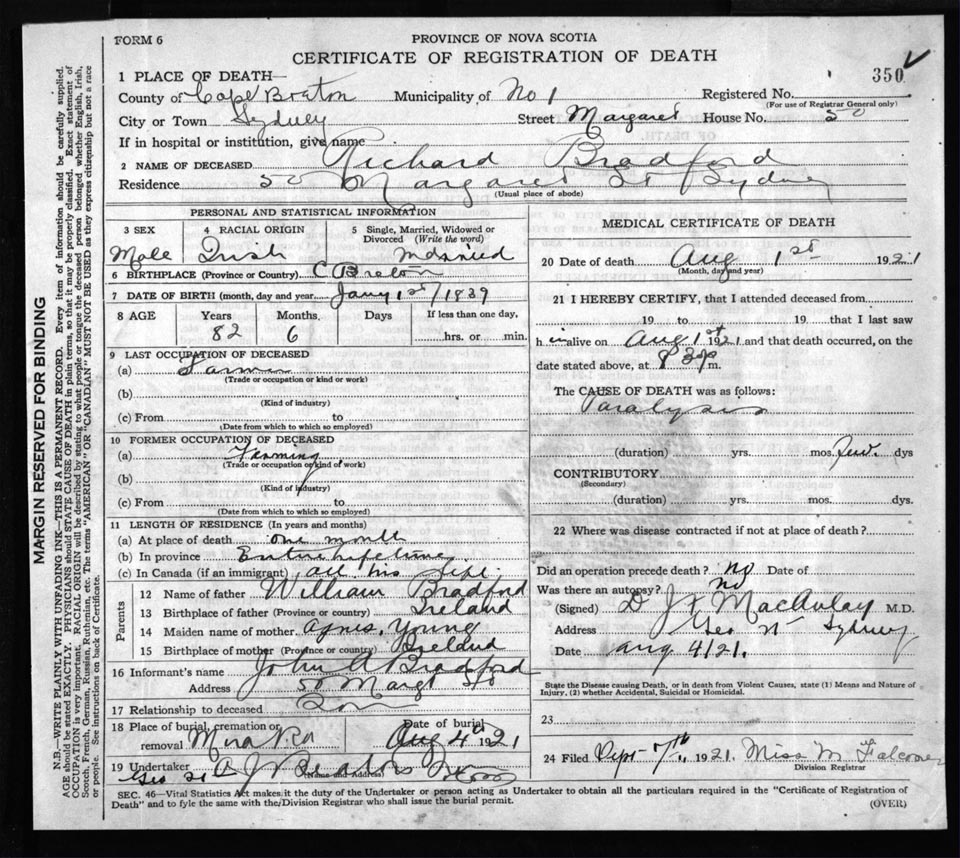 FORM 6
PROVINCE OF NOVA SCOTIA
CERTIFICATE OF REGISTRATION OF DEATH
350
1 PLACE OF DEATH—
Registered No.
(For use of Registrar General only)
County of Cape Breton Municipality of No 1
City or Town Sydney Street Margaret House No. 50
If in hospital or institution, give name
2 NAME OF DECEASED Richard Bradford
Residence 50 Margaret St Sydney
(Usual place of abode)
PERSONAL AND STATISTICAL INFORMATION
3 SEX 4 RACIAL ORIGIN 5 Single, Married, Widowed or Divorced (Write the word)
Male Irish
6 BIRTHPLACE (Province or Country) C Breton
7 DATE OF BIRTH (month, day and year) Jany 1st/1839
8 AGE Years Months Days If less than one day,
82 6 hrs. or min.
9 LAST OCCUPATION OF DECEASED
(a) Farmer
(Trade or occupation or kind or work)
(b)
(Kind of industry)
(c) From to
(Date from which to which so employed)
10 FORMER OCCUPATION OF DECEASED
(a) Farming
(Trade or occupation or kind of work)
(b)
(Kind of industry)
(c) From to
(Date from which to which so employed)
11 LENGTH OF RESIDENCE (In years and months)
(a) At place of death one month
(b) In province Entire lifetime
(c) In Canada (if an immigrant) all his life
Parents
12 Name of father William Bradford
13 Birthplace of father (Province or Country) Ireland
14 Maiden name of mother Agnes Young
15 Birthplace of mother (Province or Country) Ireland
16 Informant's name John A Bradford
Address 50 Margt St
17 Relationship to deceased Son
18 Place of burial, cremation or removal Mira Rd Date of burial Aug 4th 1921
19 Undertaker A J Beaton
(Name and Address)
Geo St
MEDICAL CERTIFICATE OF DEATH
20 Date of death Aug 1st 1921
(Month, day and year)
21 I HEREBY CERTIFY, that I attended deceased from
19 to 19 that I last saw
h im alive on Aug 1st 1921 and that death occurred, on the
date stated above, at m.
The CAUSE OF DEATH was as follows:
Paralysis
(duration) yrs. mos. few dys
CONTRIBUTORY
(Secondary)
(duration) yrs. mos. dys.
22 Where was disease contracted if not at place of death?
Did an operation precede death? no Date of
Was there an autopsy? no
(Signed) D J F MacAulay M.D.
Address Geo St Sydney
Date Aug 4/21.
State the Disease causing Death, or in death from Violent Causes, state (1) Means and Nature of
Injury, (2) whether Accidental, Suicidal or Homicidal.
23
24 Filed Sept 7th, 1921. Miss M Falconer
Division Registrar
SEC. 46—Vital Statistics Act makes it the duty of the Undertaker or person acting as Undertaker to obtain all the particulars required in the "Certificate of Registration of
Death" and to fyle the same with the Division Registrar who shall issue the burial permit.
(OVER)
MARGIN RESERVED FOR BINDING
N.B.—WRITE PLAINLY WITH UNFADING INK—THIS IS A PERMANENT RECORD. Every item of information should be carefully supplied.
AGE should be stated EXACTLY. PHYSICIANS should STATE CAUSE OF DEATH in plain terms, so that it may be properly classified. Exact statement of
OCCUPATION is very important. RACIAL ORIGIN will be described by stating to what people or tongue the deceased person belonged whether English, Irish,
Scotch, French, German, Russian, Ruthenian, etc. The terms "AMERICAN" OR "CANADIAN" MUST NOT BE USED as they express citizenship but not a race
or people. See instructions on back of Certificate.